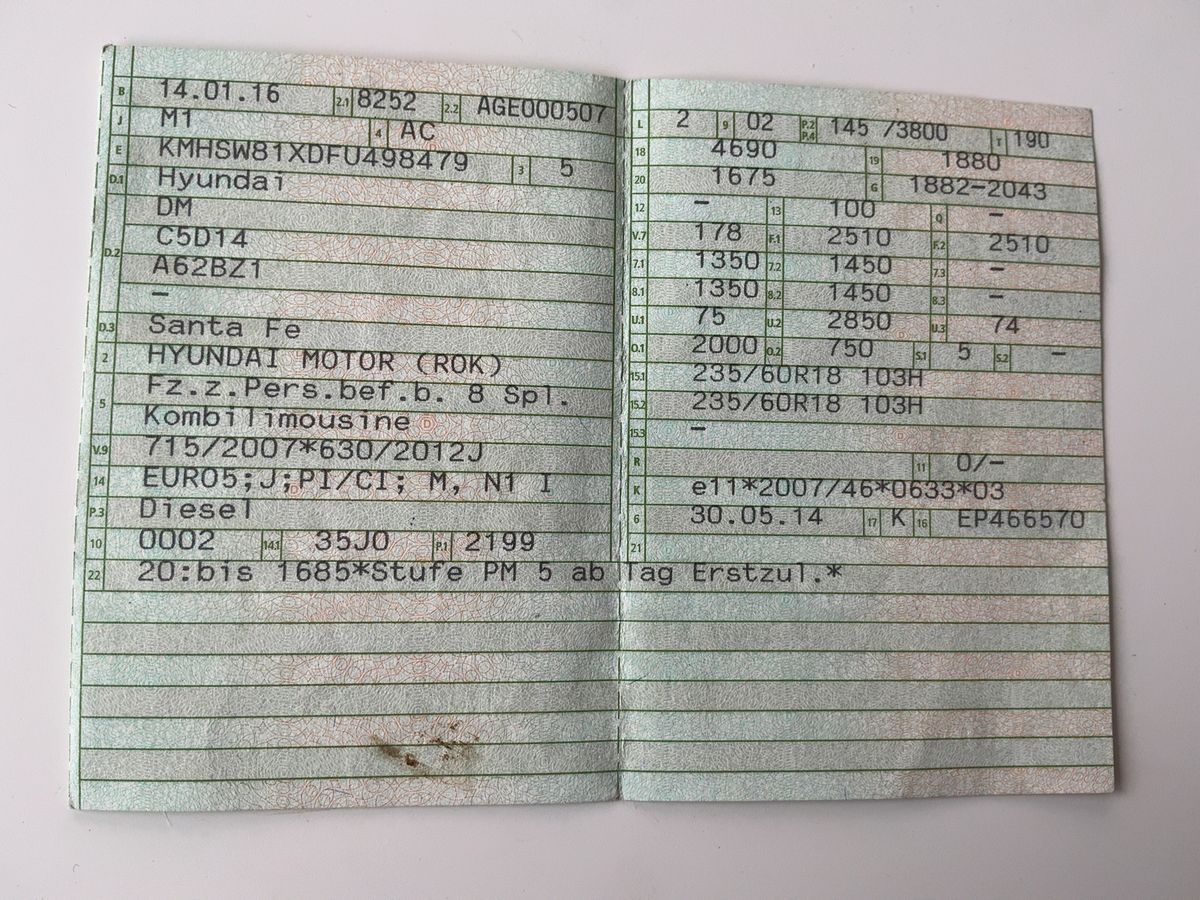 B 14.01.16 2.1 8252 2.2 AGE000507
J M1 4 AC
E KMHSW81XDFU498479 3 5
D.1 Hyundai
DM
D.2 C5D14
A62BZ1
–
D.3 Santa Fe
2 HYUNDAI MOTOR (ROK)
5 Fz.z.Pers.bef.b. 8 Spl.
Kombilimousine
V.9 715/2007*630/2012J
14 EURO5;J;PI/CI; M, N1 I
P.3 Diesel
10 0002 14.1 35J0 P.1 2199
22 20:bis 1685*Stufe PM 5 ab Tag Erstzul.*
L 2 9 02 P.2 P.4 145 /3800 T 190
18 4690 19 1880
20 1675 G 1882-2043
12 – 13 100 Q –
V.7 178 F.1 2510 F.2 2510
7.1 1350 7.2 1450 7.3 –
8.1 1350 8.2 1450 8.3 –
U.1 75 U.2 2850 U.3 74
O.1 2000 O.2 750 S.1 5 S.2 –
15.1 235/60R18 103H
15.2 235/60R18 103H
15.3 –
R 11 0/–
K e11*2007/46*0633*03
6 30.05.14 17 K 16 EP466570
21